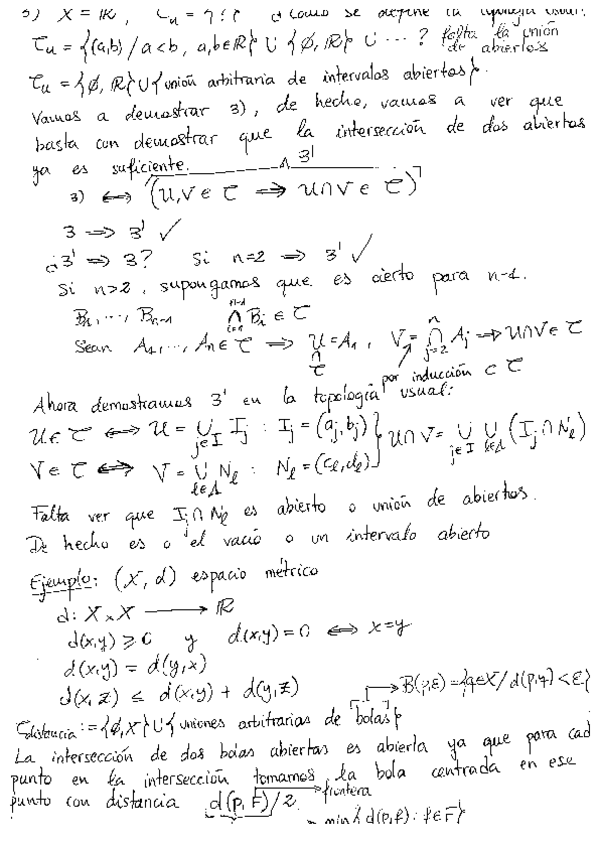 5) X = ℝ, τ_u = ¿?? ¿Cómo se define la topología usual?
τ_u = {(a,b) / a<b, a,b∈ℝ} ∪ {∅, ℝ} ∪ ... ? falta la unión de abiertos
τ_u = {∅, ℝ} ∪ {unión arbitraria de intervalos abiertos}.
Vamos a demostrar 3), de hecho, vamos a ver que
basta con demostrar que la intersección de dos abiertos
ya es suficiente. 3'
3) ⟺ (U,V ∈ τ ⟹ U∩V ∈ τ)
3 ⟹ 3' ✓
¿3' ⟹ 3? Si n=2 ⟹ 3' ✓
Si n>2, supongamos que es cierto para n-1.
B_1, ..., B_{n-1} ⋂_{i=1}^{n-1} B_i ∈ τ
Sean A_1, ..., A_n ∈ τ ⟹ U = A_1, V = ⋂_{j=2}^{n} A_j ⟹ U∩V ∈ τ
∩ τ por inducción ⊂ τ
Ahora demostramos 3' en la topología usual:
U ∈ τ ⟺ U = ⋃_{j∈I} I_j : I_j = (a_j, b_j)
V ∈ τ ⟺ V = ⋃_{ℓ∈Λ} N_ℓ : N_ℓ = (c_ℓ, d_ℓ) } U∩V = ⋃_{j∈I} ⋃_{ℓ∈Λ} (I_j ∩ N_ℓ)
Falta ver que I_j ∩ N_ℓ es abierto o unión de abiertos.
De hecho es o el vacío o un intervalo abierto
Ejemplo: (X, d) espacio métrico
d: X × X ⟶ ℝ
d(x,y) ≥ 0 y d(x,y) = 0 ⟺ x=y
d(x,y) = d(y,x)
d(x,z) ≤ d(x,y) + d(y,z)
B(p,ε) = {q∈X / d(p,q) < ε}
τ_distancia := {∅, X} ∪ {uniones arbitrarias de bolas}
La intersección de dos bolas abiertas es abierta ya que para cad
punto en la intersección tomamos la bola centrada en ese
punto con distancia d(p, F)/2 frontera
= min {d(p,f) : f∈F}